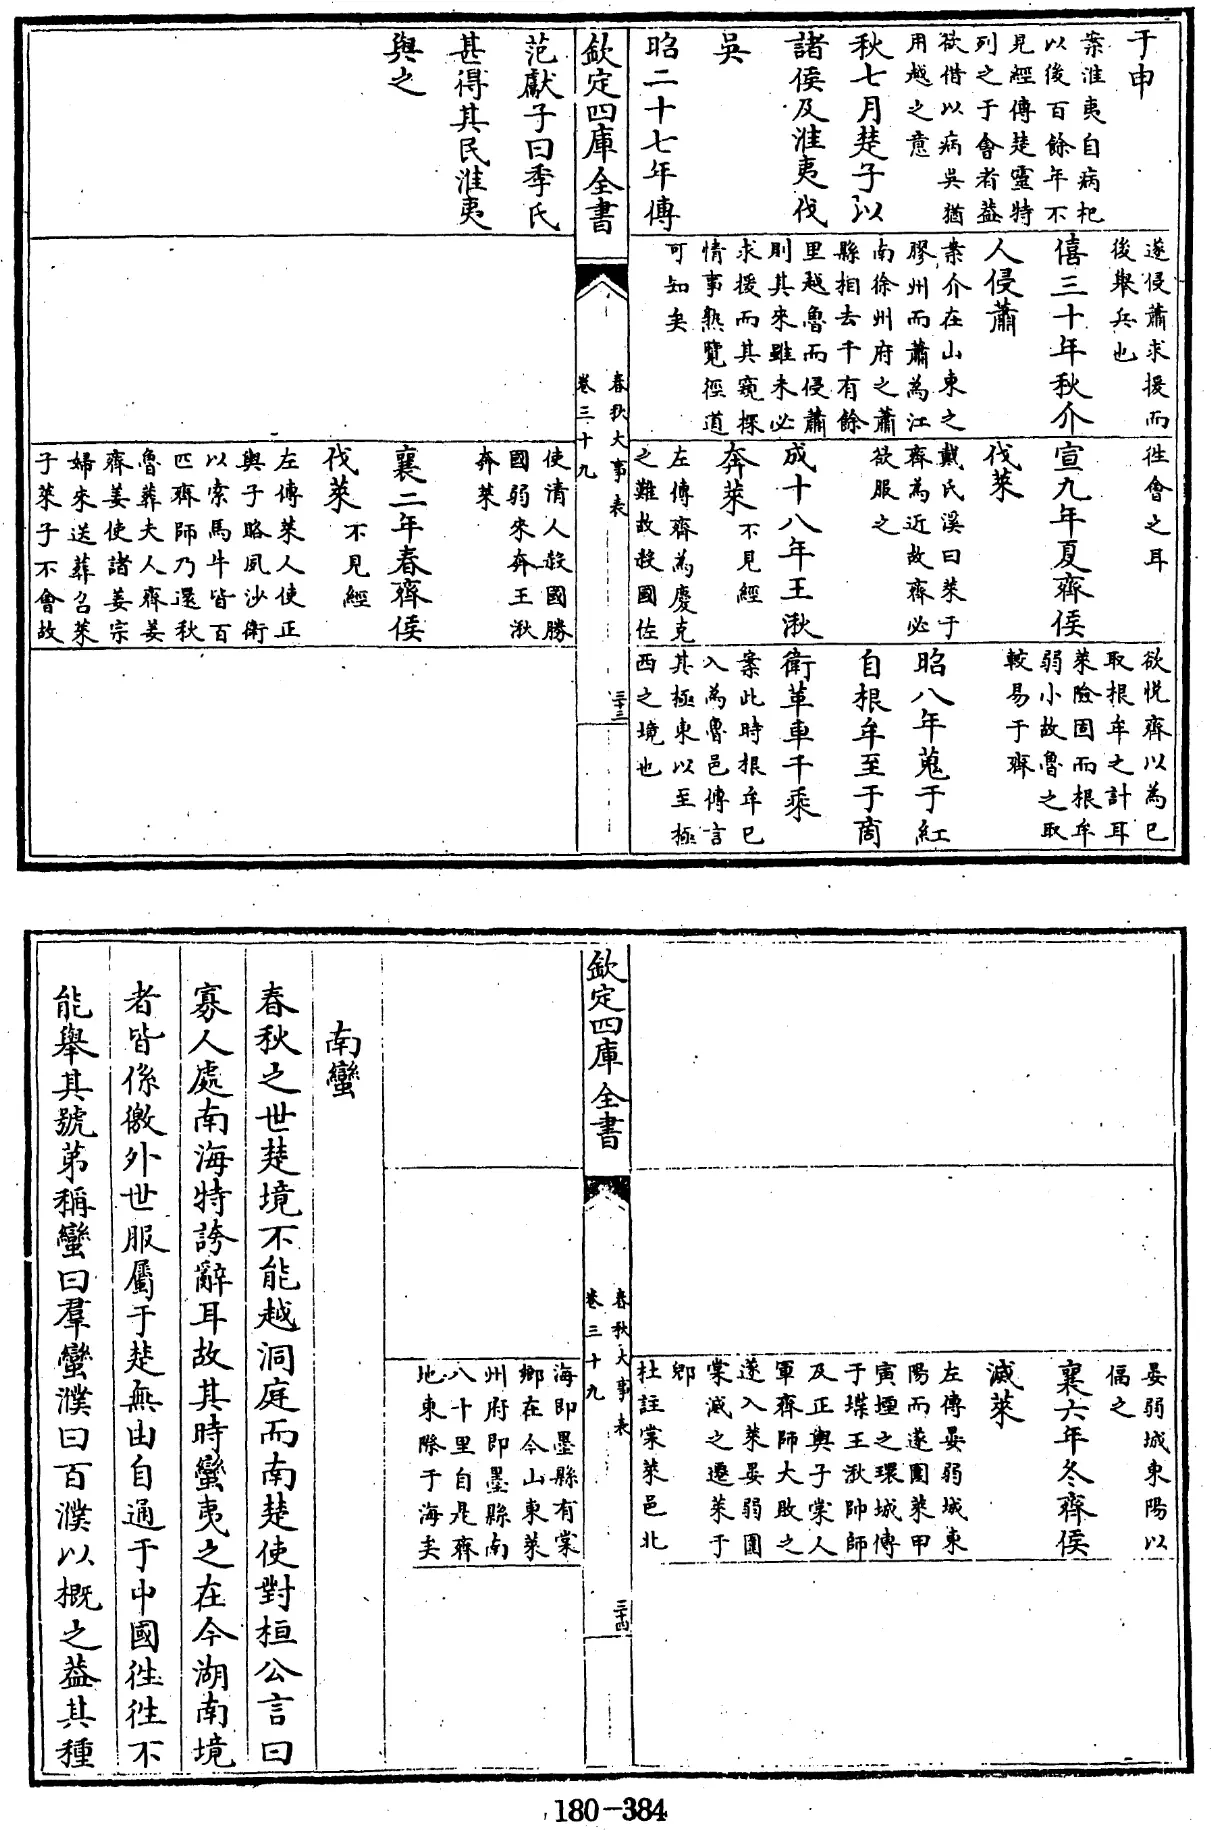 于申
案淮夷自病杞
以後百餘年不
見經傳楚靈特
列之于會者蓋
欲借以病吳猶
用越之意
秋七月楚子以
諸侯及淮夷伐
吳
昭二十七年傳
遂侵蕭求援而
後舉兵也
僖三十年秋介
人侵蕭
案介在山東之
膠州而蕭為江
南徐州府之蕭
縣相去千有餘
里越魯而侵蕭
則其來雖未必
求援而其窺探
情事熟覽徑道
可知矣
往會之耳
宣九年夏齊侯
伐萊
戴氏溪曰萊于
齊為近故齊必
欲服之
成十八年王湫
奔萊 不見經
左傳齊為慶克
之難故殺國佐
欲悅齊以為已
取根牟之計耳
萊險固而根牟
弱小故魯之取
較易于齊
昭八年蒐于紅
自根牟至于商
衛革車千乘
案此時根牟已
入為魯邑傳言
其極東以至極
西之境也
欽定四庫全書
春秋大事表
卷三十九
三十三
范獻子曰季氏
甚得其民淮夷
與之
使清人殺國勝
國弱來奔王湫
奔萊
襄二年春齊侯
伐萊 不見經
左傳萊人使正
輿子賂夙沙衛
以索馬牛皆百
匹齊師乃還秋
魯葬夫人齊姜
齊姜使諸姜宗
婦來送葬召萊
子萊子不會故
晏弱城東陽以
偪之
襄六年冬齊侯
滅萊
左傳晏弱城東
陽而遂圍萊甲
寅堙之環城傅
于堞王湫帥師
及正輿子棠人
軍齊師大敗之
遂入萊晏弱圍
棠滅之遷萊于
郳
杜註棠萊邑北
欽定四庫全書
春秋大事表
卷三十九
三十四
海即墨縣有棠
鄉在今山東萊
州府即墨縣南
八十里自是齊
地東際于海矣
南蠻
春秋之世楚境不能越洞庭而南楚使對桓公言曰
寡人處南海特誇辭耳故其時蠻夷之在今湖南境
者皆係徼外世服屬于楚無由自通于中國往往不
能舉其號第稱蠻曰羣蠻濮曰百濮以概之蓋其種
180-384